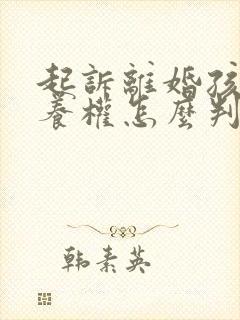 起訴離婚孩
養權怎麼判
韩素英